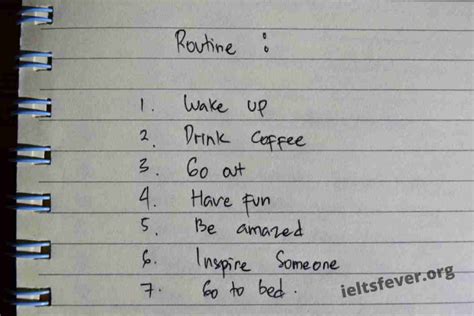 Routine :
1. Wake up
2. Drink coffee
3. Go out
4. Have fun
5. Be amazed
6. Inspire Someone
7. Go to bed.
ieltsfever.org